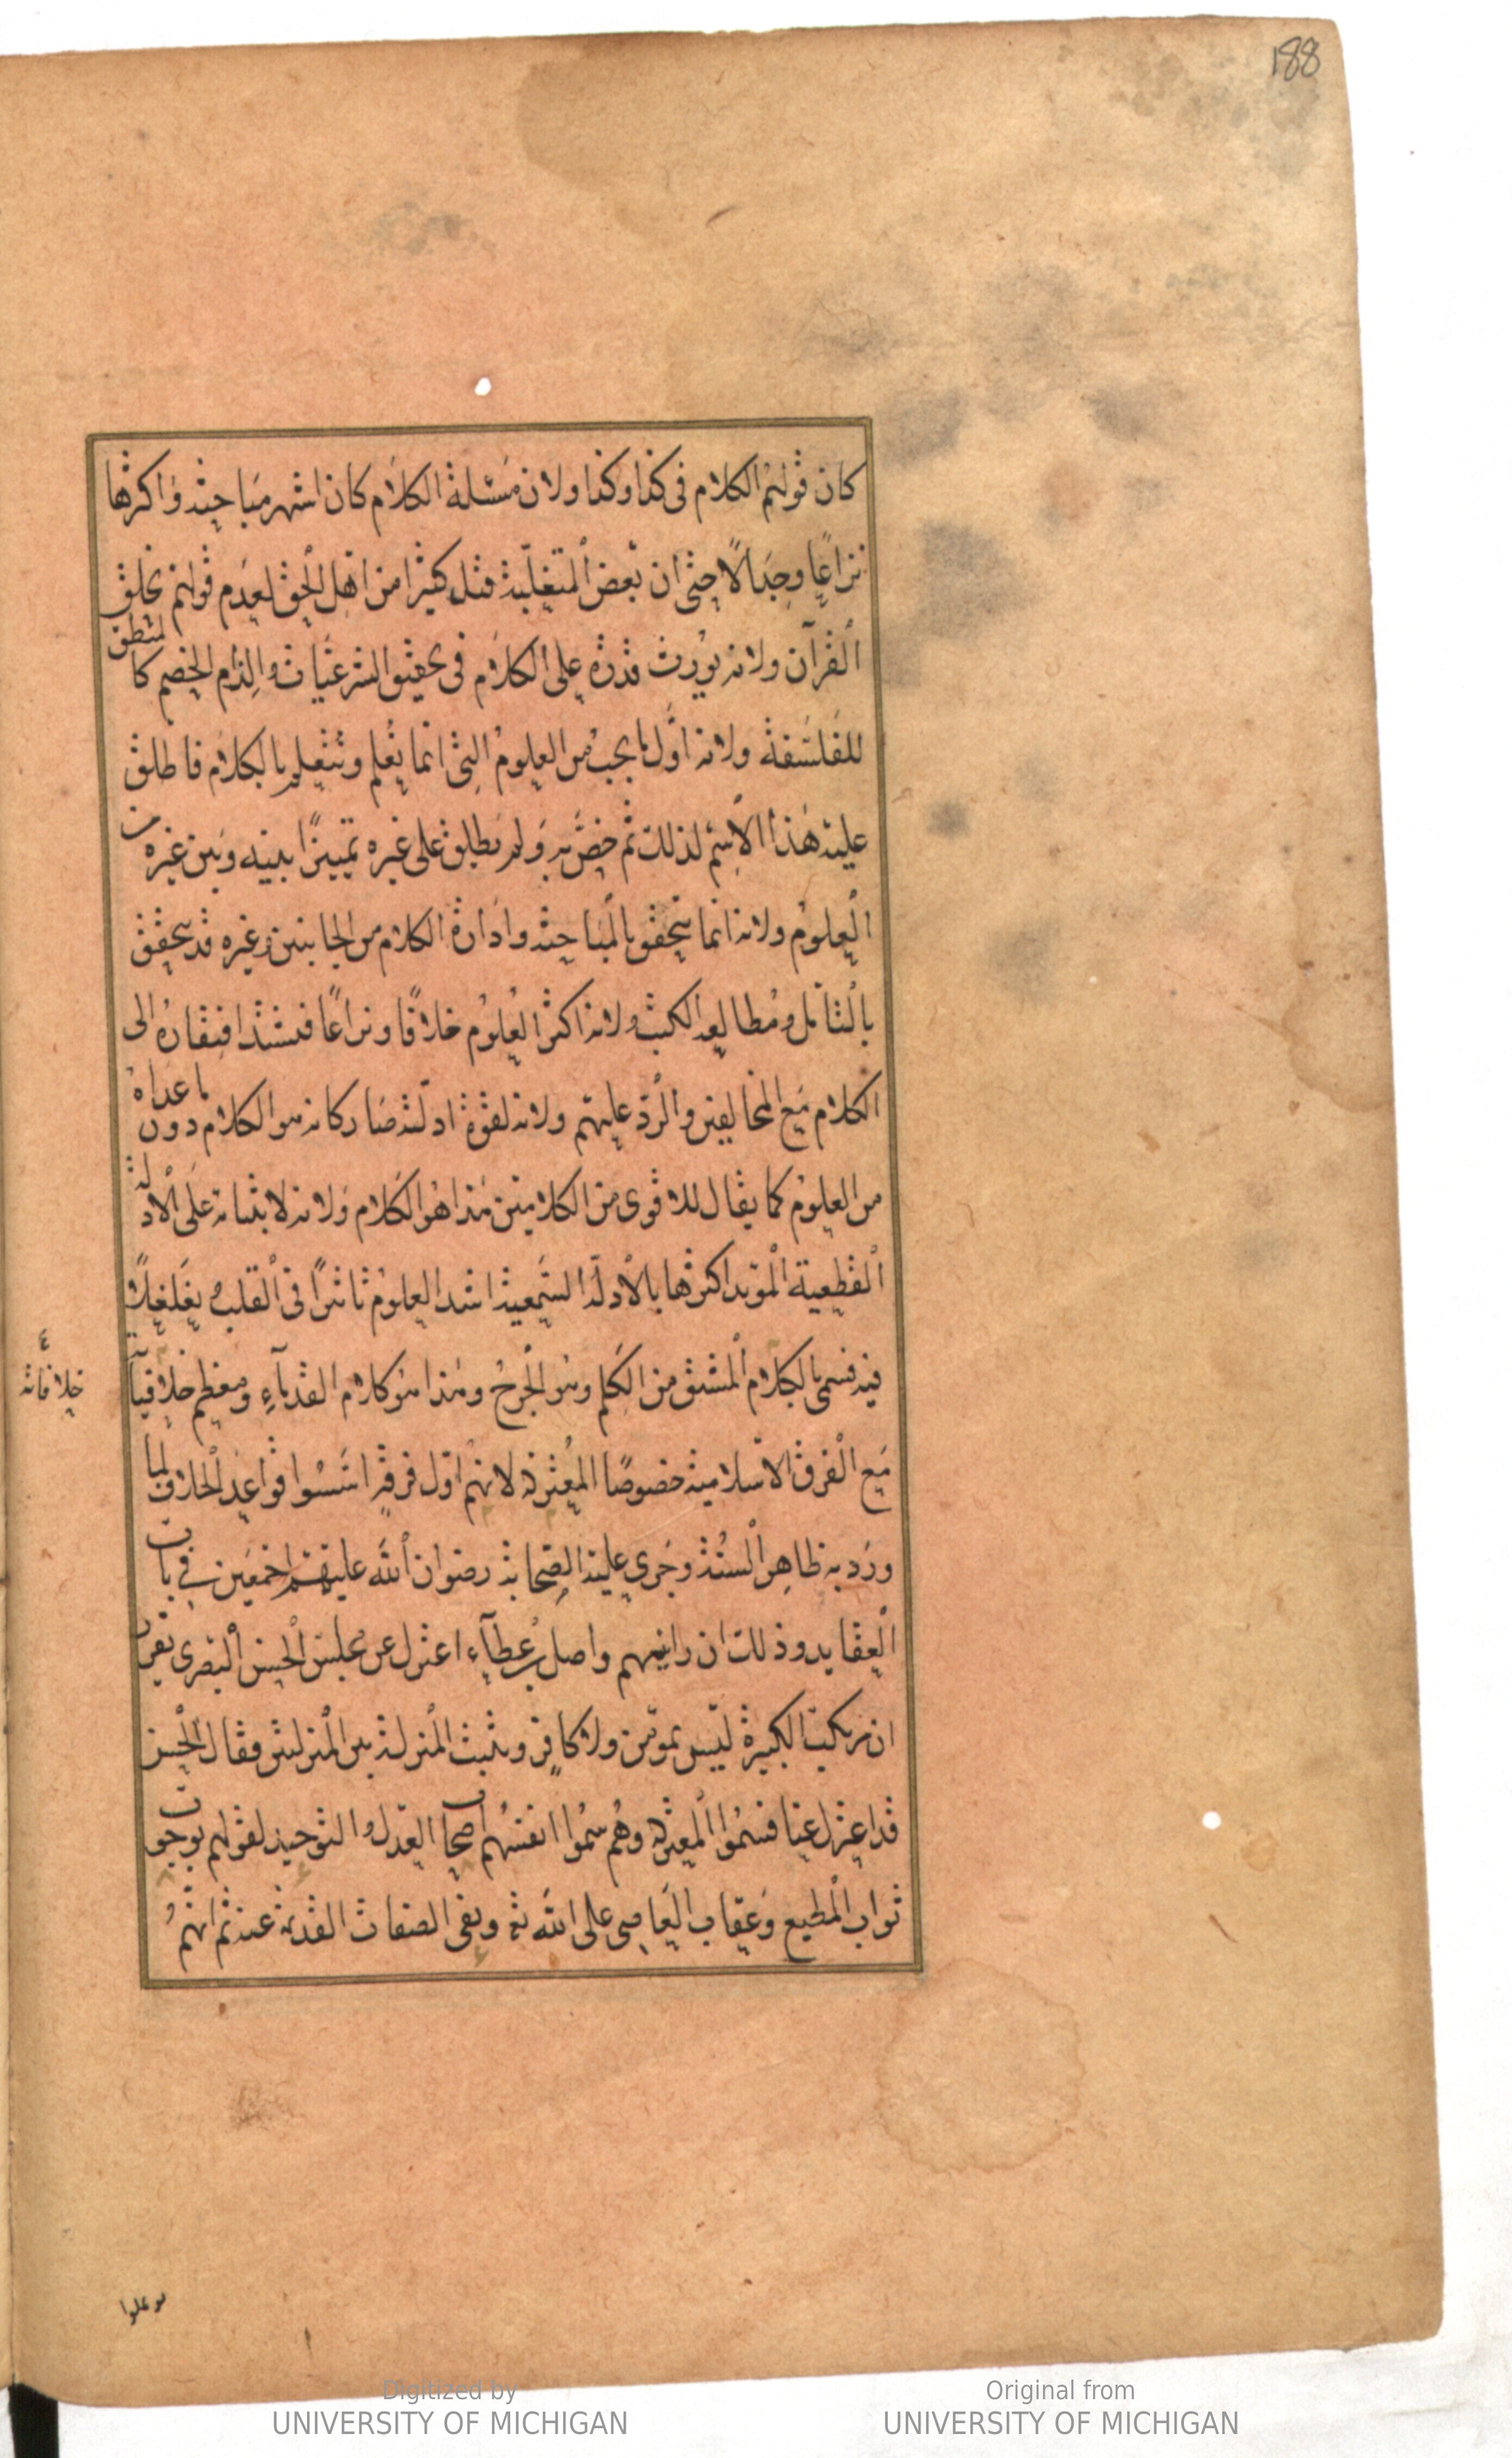 188
كان قولهم الكلام فى كذا وكذا ولان مسئلة الكلام كان اشهر مباحثه واكثرها
نزاعًا وجدالًا حتى ان بعض المتغلبة قتل كثيرا من اهل الحق لعدم قولهم بخلق
القرآن ولانه يورث قدرة على الكلام فى تحقيق الشرعيات والزام الخصم كالمنطق
للفلسفة ولانه اول ما يجب من العلوم التى انما يعلم ويتعلم بالكلام فاطلق
عليه هذا الاسم لذلك ثم خص به ولم يطلق على غيره تمييزًا بينه وبين غيره من
العلوم ولانه انما يتحقق بالمباحثه وادارة الكلام من الجانبين وغيره قد يتحقق
بالتامل ومطالعة الكتب ولانه اكثر العلوم خلافًا ونزاعًا فيشتد افتقاره الى
الكلام مع المخالفين والرد عليهم ولانه لقوة ادلته صار كانه هو الكلام دون ما عداه
من العلوم كما يقال للاقوى من الكلامين هذا هو الكلام ولانه لابتنائه على الادلة
القطعية المؤيد اكثرها بالادلة السمعية اشد العلوم تاثيرًا فى القلب تغلغلًا
فيه فسمى بالكلام المشتق من الكلم وهو الجرح وهذا هو كلام القدمآء ومعظم خلافياته
خلافاته
مع الفرق الاسلامية خصوصًا المعتزلة لانهم اول فرقة اسسوا قواعد الخلاف لما
ورد به ظاهر السنة وجرى عليه الصحابة رضوان الله عليهم اجمعين فى باب
العقايد وذلك ان رائيسهم واصل بن عطآء اعتزل عن مجلس الحسن البصرى يقرر
ان مرتكب الكبيرة ليس بمومن ولا كافر ويثبت المنزلة بين المنزلتين فقال الحسن
قد اعتزل عنا فسموا المعتزلة وهم سموا انفسهم اصحاب العدل والتوحيد لقولهم بوجوب
ثواب المطيع وعقاب العاصى على الله تع ونفى الصفات القديمة عنه ثم انهم
توغلوا
Digitized by
UNIVERSITY OF MICHIGAN
Original from
UNIVERSITY OF MICHIGAN